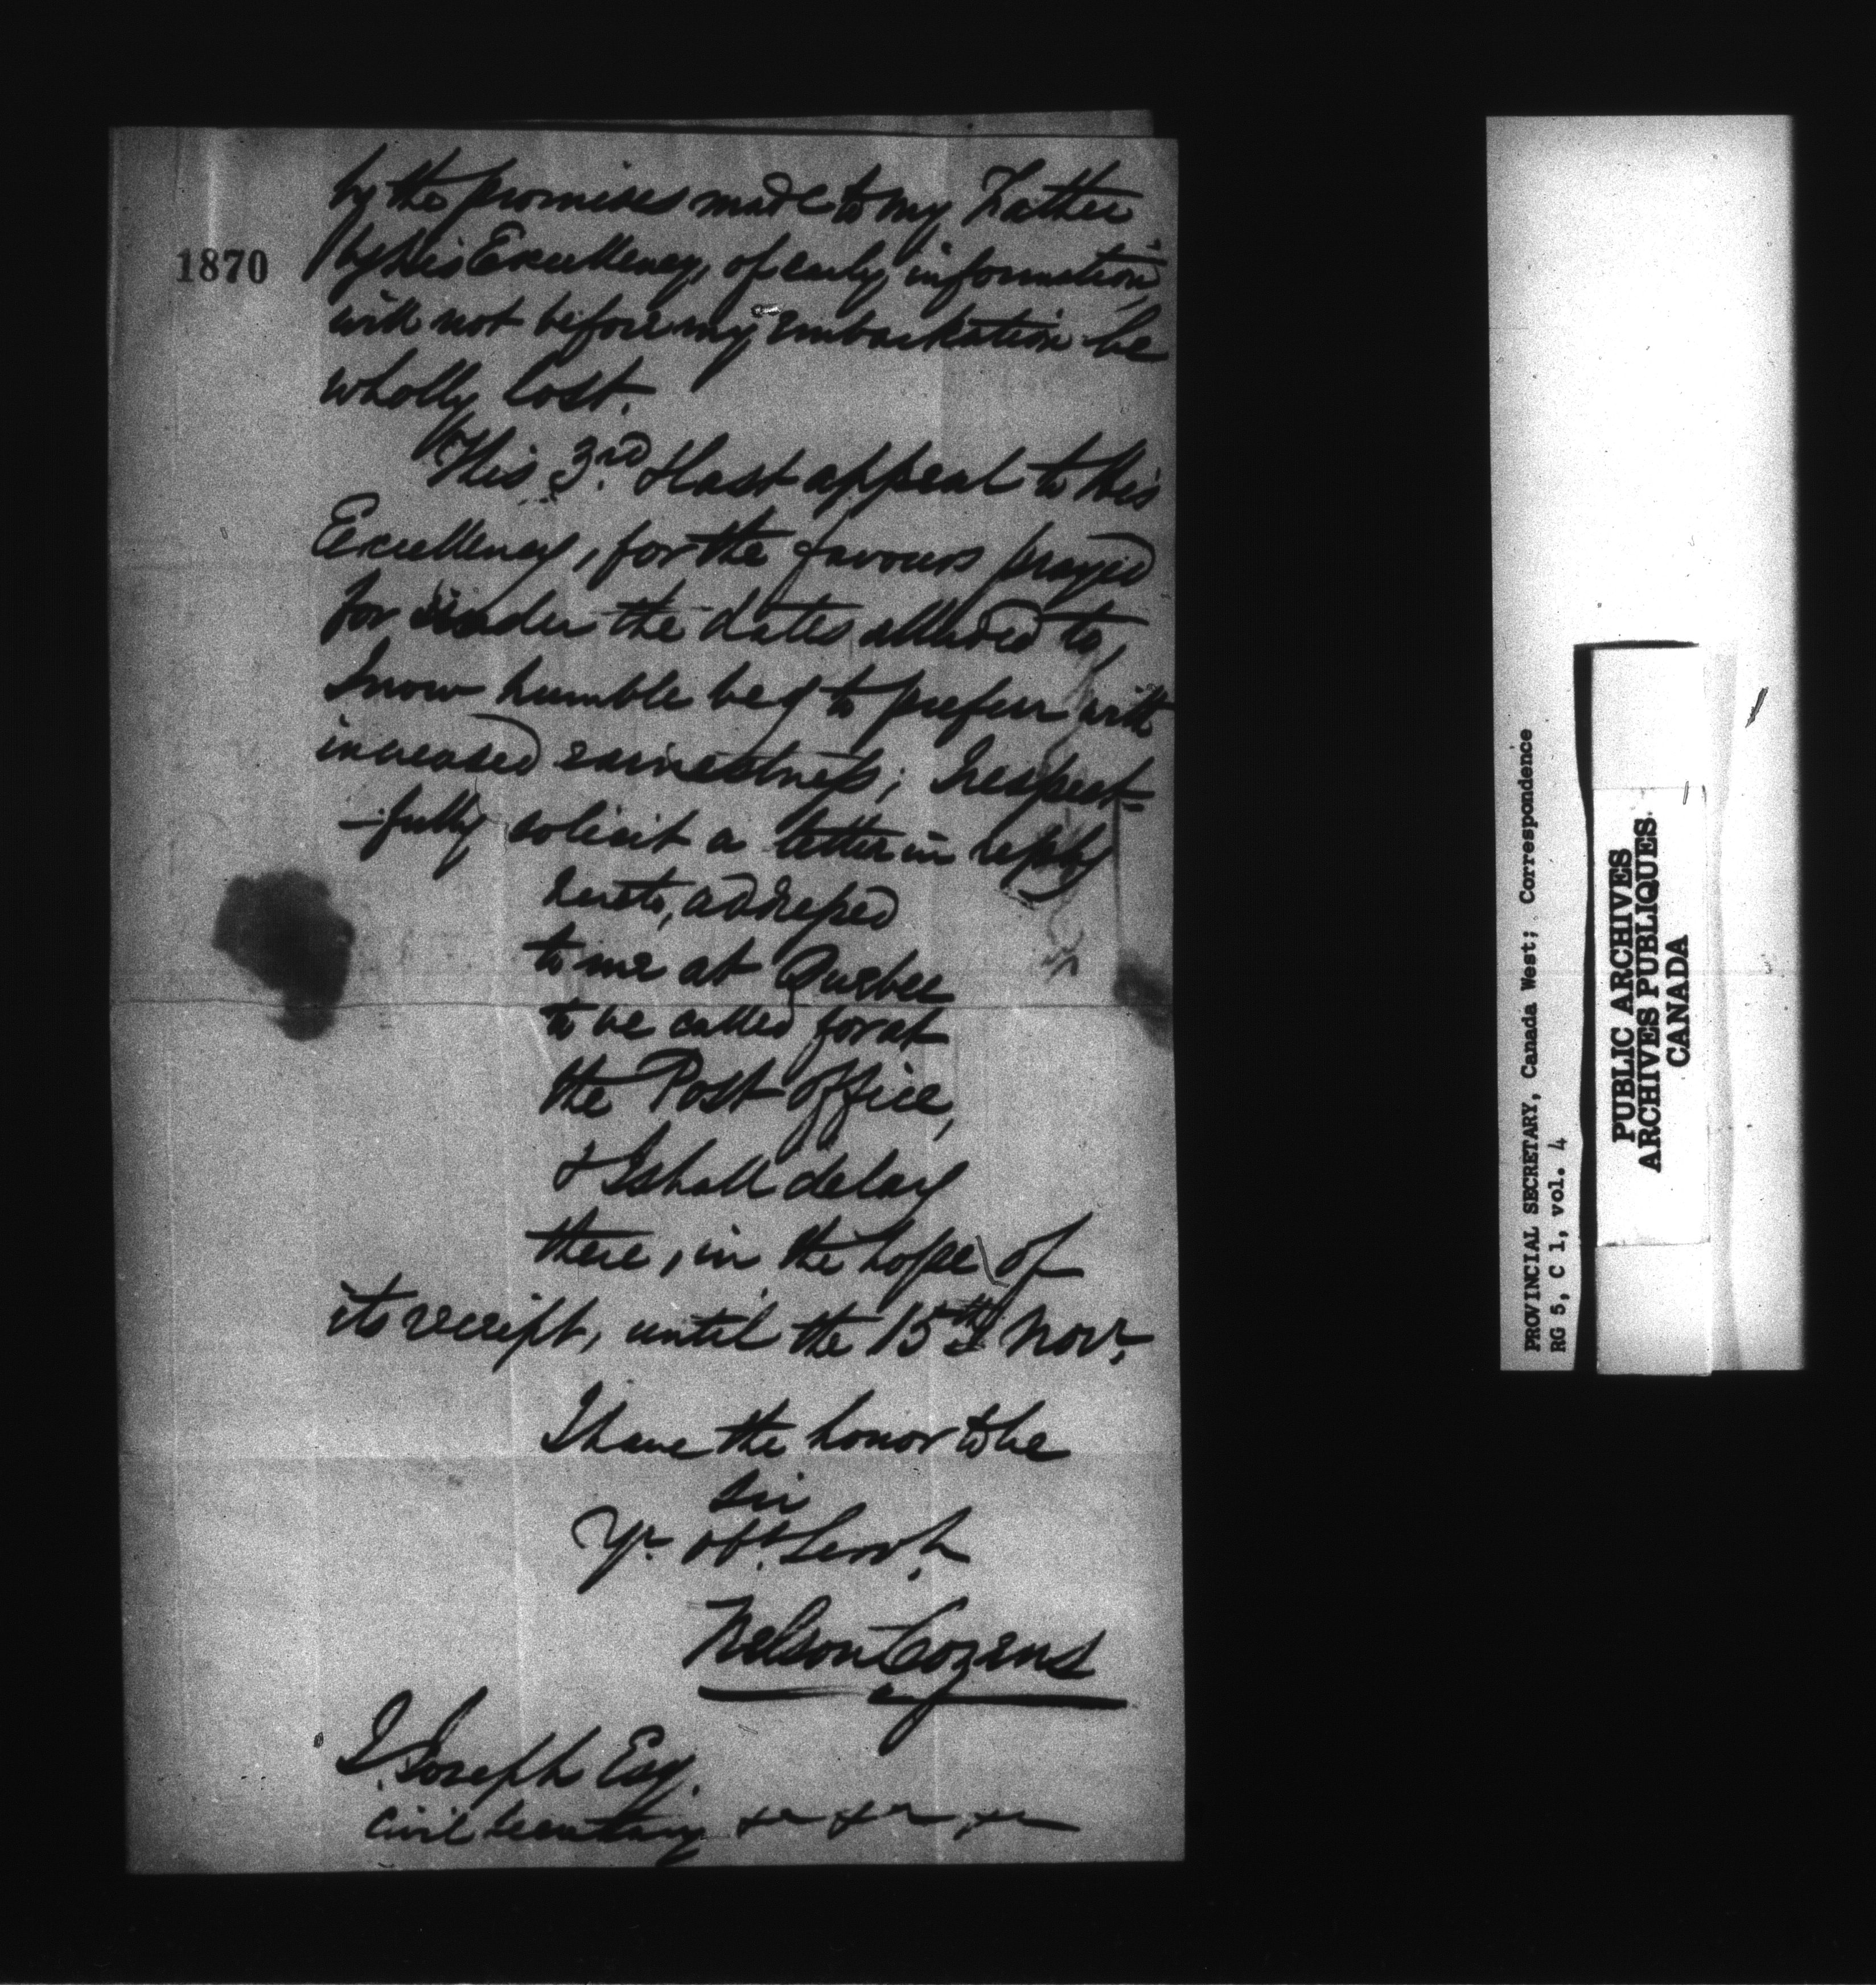 1870
by the promises made to my Father
by his Excellency, of early information,
will not before my embarkation be
wholly lost.
This 3rd & last appeal to his
Excellency, for the favours prayed
for under the dates alluded to,
I now humble beg to prefer with
increased earnestness; I respect=
-fully solicit a letter in reply
hereto, addressed
to me at Quebec
to be called for at
the Post office,
& I shall delay
there, in the hope of
its receipt, until the 15th Novr.
I have the honor to be
Sir
Yr. obt. Servt.
Nelson Cozens
J. Joseph Esq.
Civil Secretary &c &c &c
PROVINCIAL SECRETARY, Canada West; Correspondence
RG 5, C 1, vol. 4
PUBLIC ARCHIVES
ARCHIVES PUBLIQUES
CANADA